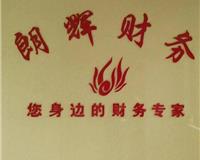 朗辉财务
您身边的财务专家